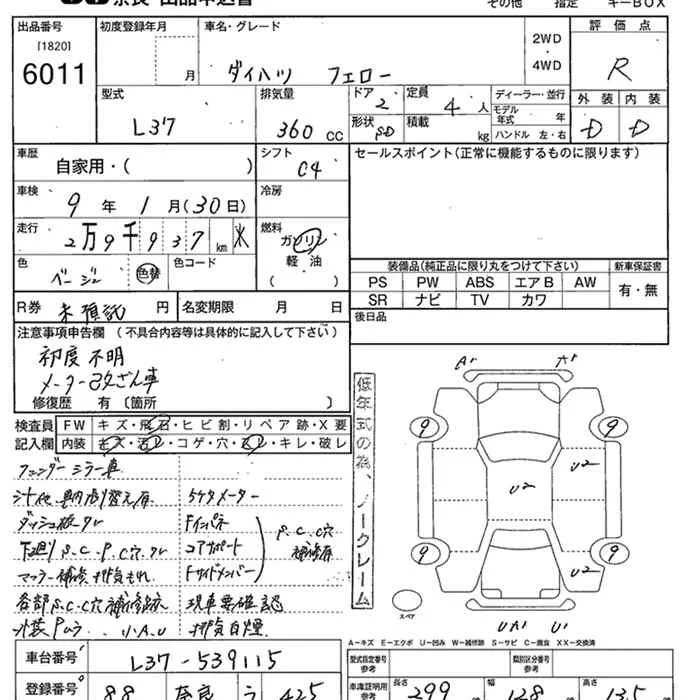 奈良 出品申込書
その他 指定 キーBOX
出品番号 初度登録年月 車名・グレード 評価点
[1820] 2WD
6011 月 ダイハツ フェロー 4WD R
型式 排気量 ドア 2 定員 4人 ディーラー・並行 外装 内装
モデル年式 年
L37 360 CC 形状 SD 積載 kg ハンドル 左・右 D D
車歴 シフト セールスポイント(正常に機能するものに限ります)
自家用・( ) C4
車検 冷房
9年 1月(30日)
走行 燃料
2万9千937 km ガソリン
色 色コード 軽油
ベージュ 色替 ( )
装備品(純正品に限り丸をつけて下さい) 新車保証書
PS PW ABS エアB AW 有・無
SR ナビ TV カワ
R券 未預託 円 名変期限 月 日 後日品
注意事項申告欄 (不具合内容等は具体的に記入して下さい)
初度不明
メーター改ざん車
修復歴 有 (箇所 )
検査員 FW キズ・飛石・ヒビ割・リペア跡・X要
記入欄 内装 キズ・汚レ・コゲ・穴・スレ・キレ・破レ
フェンダーミラー車
5ケタメーター
ダッシュ板ワレ Fインパネ S,C,C穴
下廻りS.C.P.C穴 コアサポート 補修有
マフラー補修 排気もれ Fサイドメンバー
各部S.C.C穴補修跡 現車要確認
小A.U 排気白煙
低年式の為、ノークレーム
A' A'
9 9
U2 U2
9 9
U2
スペア
UA1 U1
A-キズ E-エクボ U-凹み W-補修跡 S-サビ C-腐食 XX-交換済
車台番号 L37-539115 型式指定番号 類別区分番号
参考
登録番号 88 奈良 う 425 車庫証明用 長さ 299 幅 128 高さ 135
参考